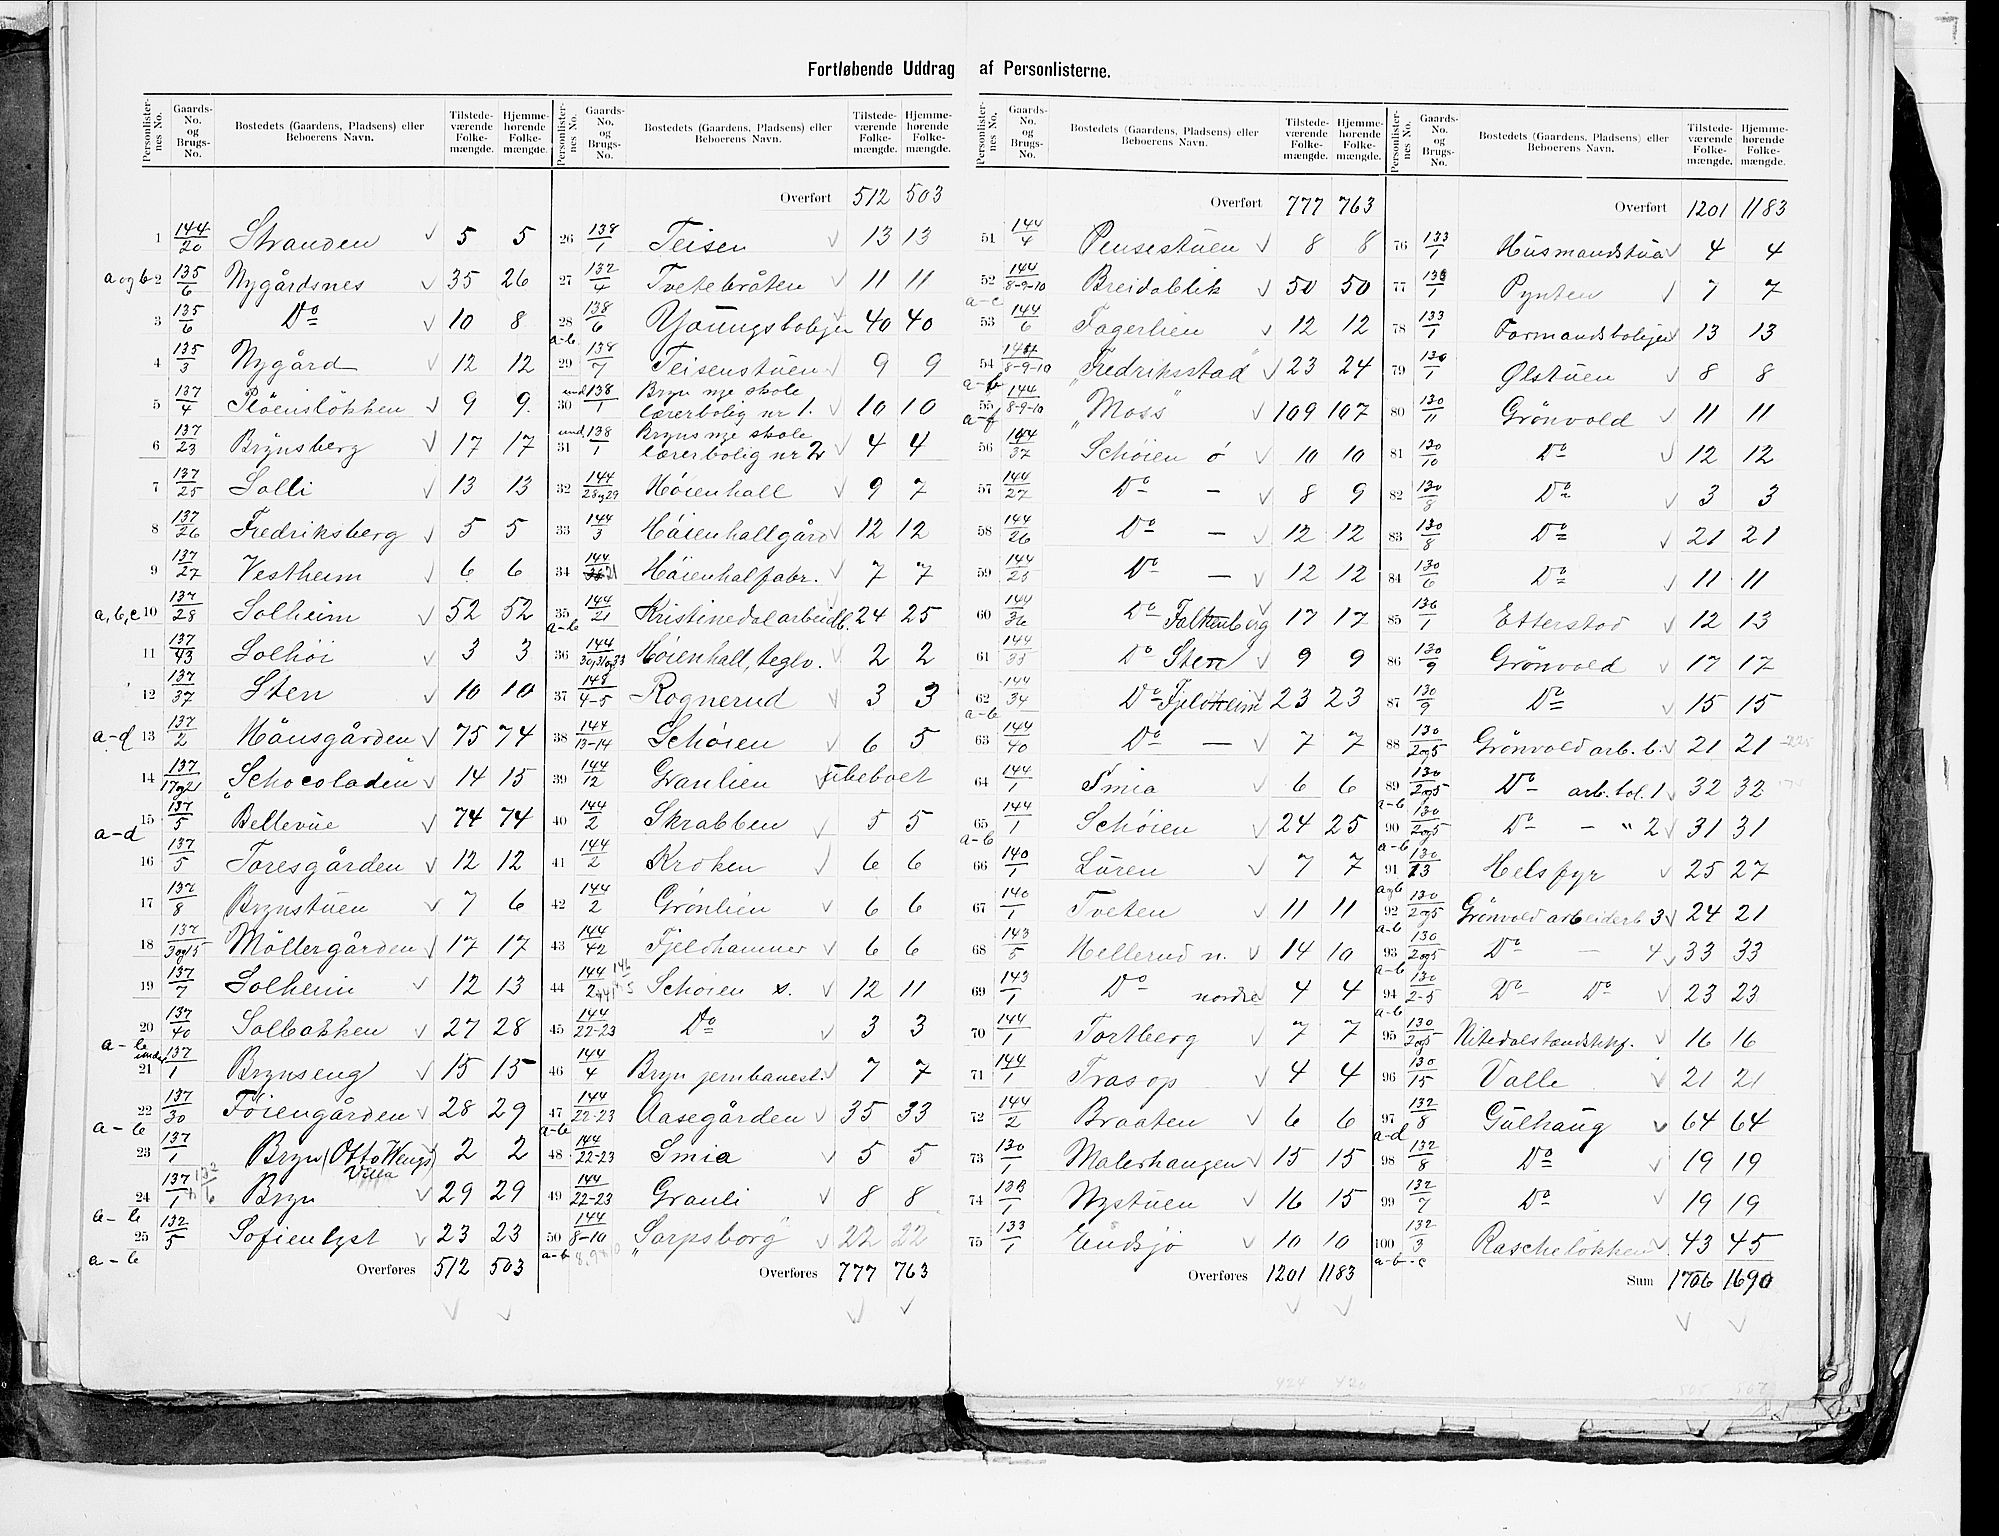 Fortløbende Uddrag af Personlisterne.
Personlister-nes No. Gaards-No. og Brugs-No. Bostedets (Gaardens, Pladsens) eller Beboerens Navn. Tilstede-værende Folke-mængde. Hjemme-hørende Folke-mængde.
1 144/20 Stranden 5 5
a og b 2 135/6 Nygårdsnes 35 26
3 135/6 Do 10 8
4 135/3 Nygård 12 12
5 137/4 Plöensløkken 9 9
6 137/23 Brynsberg 17 17
7 137/25 Solli 13 13
8 137/26 Fredriksberg 5 5
9 137/27 Vestheim 6 6
a, b, c 10 137/28 Solheim 52 52
11 137/43 Solhöi 3 3
12 137/37 Sten 10 10
a-d 13 137/2 Hånsgården 75 74
14 137/17og21 "Schocoladen" 14 15
15 137/5 Bellevue 74 74
a-d
16 137/5 Toresgården 12 12
17 137/8 Brynstuen 7 6
18 137/3og15 Möllergården 17 17
19 137/7 Solheim 12 13
20 137/40 Solbakken 27 28
a-b
21 under 137/1 Brynseng 15 15
22 137/30 Føiengården 28 29
a-b
23 137/1 Bryn (Otto Wengs Villa) 2 2
24 137/1 132/6 Bryn 29 29
a-b
25 132/5 Sofienlyst 23 23
a-b
Overføres 512 503
Personlister-nes No. Gaards-No. og Brugs-No. Bostedets (Gaardens, Pladsens) eller Beboerens Navn. Tilstede-værende Folke-mængde. Hjemme-hørende Folke-mængde.
Overført 512 503
26 138/1 Teisen 13 13
27 132/4 Tvetebråten 11 11
28 138/6 Youngsboligen 40 40
a-b
29 138/7 Teisenstuen 9 9
30 und. 138/1 Bryn nye skole lærerbolig nr 1. 10 10
31 und. 138/1 Bryns nye skole lærerbolig nr 2 4 4
32 144/28og29 Høienhall 9 7
33 144/3 Høienhallgård 12 12
34 144/21 Høienhalfabr. 7 7
35 144/21 Kristinedal arbeidb. 24 25
a-b
36 144/30og31og33 Høienhall, teglv. 2 2
37 148/4-5 Rognerud 3 3
38 144/13-14 Schøien 6 5
39 144/12 Granlien ubeboet
40 144/2 Skrabben 5 5
41 144/2 Kroken 6 6
42 144/2 Grönlien 6 6
43 144/42 Fjeldhammer 6 6
44 144/2 Schøien s. 12 11
45 144/22-23 Do 3 3
46 144/4 Bryn jernbanest. 7 7
47 144/22-23 Aasegården 35 33
a-b
48 144/22-23 Smia 5 5
49 144/22-23 Granli 8 8
50 144/8-10 "Sarpsborg" 22 22
a-b 8, 9 & 10
Overføres 777 763
Personlister-nes No. Gaards-No. og Brugs-No. Bostedets (Gaardens, Pladsens) eller Beboerens Navn. Tilstede-værende Folke-mængde. Hjemme-hørende Folke-mængde.
Overført 777 763
51 144/4 Pensestuen 8 8
52 144/8-9-10 Breidablik 50 50
a-c
53 144/6 Fagerlien 12 12
54 144/8-9-10 "Fredriksstad" 23 24
a-b
55 144/8-9-10 "Moss" 109 107
a-f
56 144/37 Schøien ö 10 10
57 144/27 Do - 8 9
58 144/26 Do - 12 12
59 144/25 Do - 12 12
60 144/36 Do Falkenberg 17 17
61 144/35 Do Sten 9 9
62 144/34 Do Fjeldheim 23 23
a-b
63 144/40 Do - 7 7
64 144/1 Smia 6 6
65 144/1 Schøien 24 25
a-b
66 140/1 Luren 7 7
67 140/1 Tveten 11 11
68 143/5 Hellerud n. 14 10
69 143/1 Do nordre 4 4
70 144/1 Tortberg 7 7
71 144/1 Trasop 4 4
72 144/2 Braaten 6 6
73 130/1 Malerhaugen 15 15
74 133/1 Nystuen 16 15
75 133/1 Eindsjø 10 10
Overføres 1201 1183
Personlister-nes No. Gaards-No. og Brugs-No. Bostedets (Gaardens, Pladsens) eller Beboerens Navn. Tilstede-værende Folke-mængde. Hjemme-hørende Folke-mængde.
Overført 1201 1183
76 133/1 Husmandstua 4 4
77 133/1 Pynten 7 7
78 133/1 Formandsboligen 13 13
79 130/1 Ølstuen 8 8
80 130/11 Grönvold 11 11
81 130/10 Do 12 12
82 130/8 Do 3 3
83 130/8 Do 21 21
84 130/6 Do 11 11
85 136/1 Etterstad 12 13
86 130/9 Grönvold 17 17
87 130/9 Do 15 15
88 130/2og5 Grönvold arb. b. 21 21
89 130/2og5 Do arb. bol. 1 32 32
a-b
90 130/2og5 Do - " 2 31 31
a-b
91 130/13 Helsfyr 25 27
a og b
92 130/2og5 Grönvold arbeiderb. 3 24 21
a-b
93 130/2og5 Do - 4 33 33
a-b
94 130/2-5 Do Do 23 23
a-b
95 130/2og5 Nitedalstændstkf. 16 16
96 130/15 Valle 21 21
97 132/8 Gulhaug 64 64
a-d
98 132/8 Do 19 19
99 132/7 Do 19 19
100 132/3 Rascheløkken 43 45
a-b-c
Sum 1706 1690
424 420 505 507